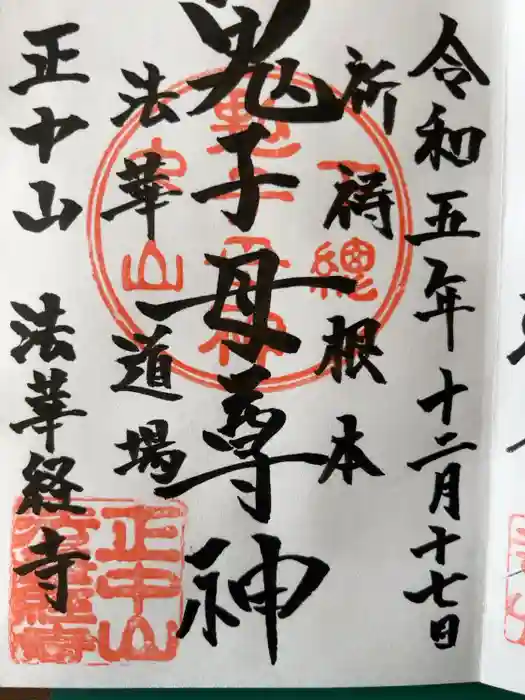 令和五年十二月十七日
祈祷根本
鬼子母尊神
法華道場
正中山 法華経寺
正中山